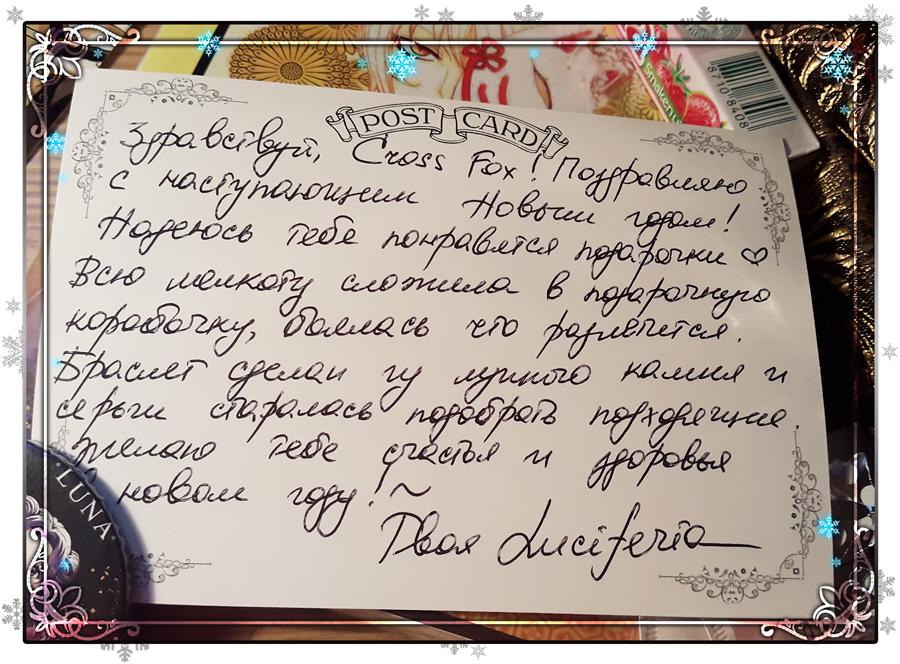 POST CARD
Здравствуй, Cross Fox! Поздравляю
с наступающим Новым годом!
Надеюсь тебе понравятся подарочки ♡
Всю мелкоту сложила в подарочную
коробочку, боялась что разлетится.
Браслет сделан из лунного камня и
серьги старалась подобрать подходящие.
Желаю тебе счастья и здоровья
в новом году! ~
Твоя Luciferia
LUNA
smakem
8710 8408